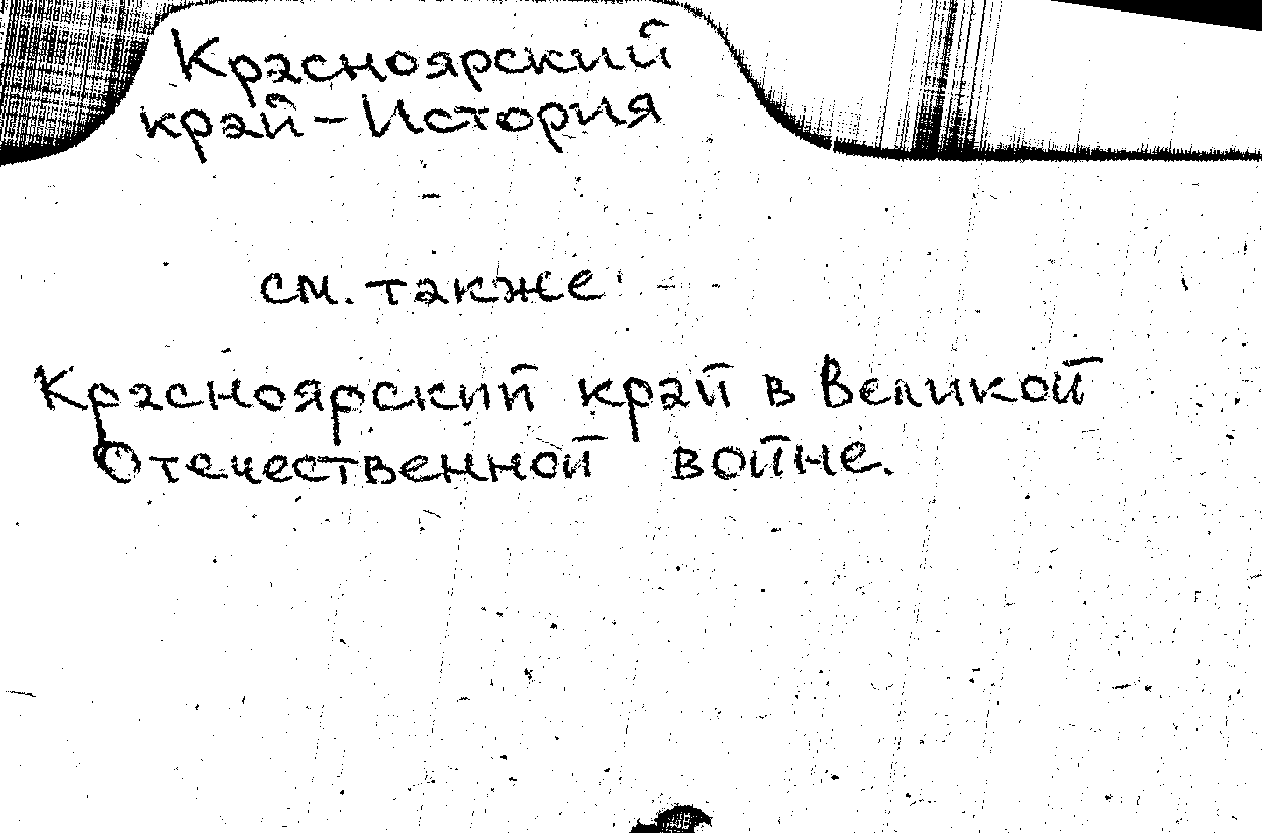 Красноярский
край - История
см. также:
Красноярский край в Великой
Отечественной войне.